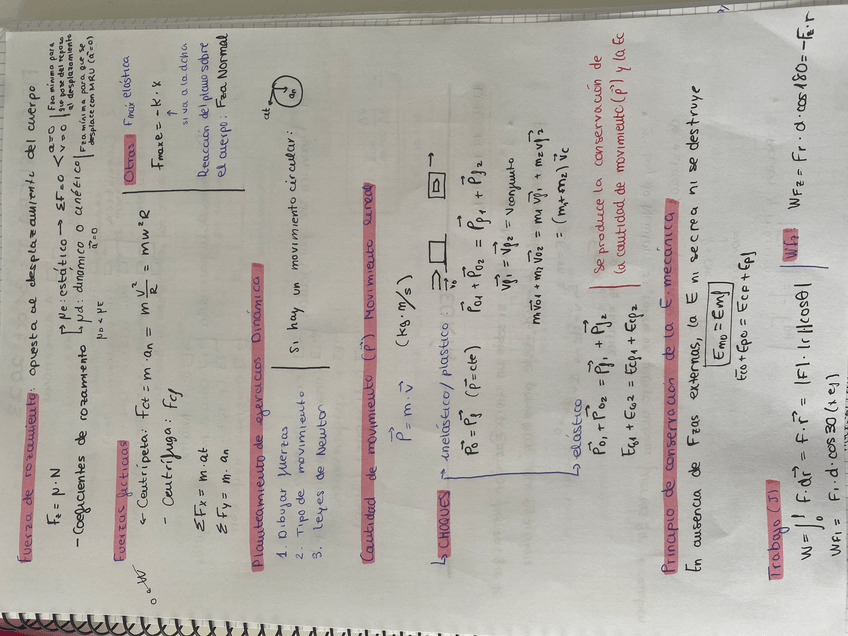 Fuerza de rozamiento: opuesta al desplazamiento del cuerpo
Fz = μ · N
- Coeficientes de rozamiento
μe: estático → ΣF=0 < a=0 v=0 | Fza mínima para que pase del reposo al desplazamiento
μd: dinámico o cinético | Fza mínima para que se desplace con MRU (a⃗=0)
a⃗=0
μD < μE
Fuerzas ficticias
- Centrípeta: Fct = m · an = m V²/R = m w² R
- Centrífuga: Fcf
ΣFx = m · at
ΣFy = m · an
Otras Fmax elástica
Fmax e = -K · x
↑
si va a la dcha
Reacción del plano sobre
el cuerpo: Fza Normal
Planteamiento de ejercicios Dinámica
1. Dibujar fuerzas
2. Tipo de movimiento
3. Leyes de Newton
Si hay un movimiento circular:
at
an
Cantidad de movimiento (P⃗) Movimiento lineal
P⃗ = m · v⃗ (kg · m/s)
↳ CHOQUES → inelástico/plástico:
P⃗0 = P⃗f (P⃗=cte) P⃗01 + P⃗02 = P⃗f1 + P⃗f2
v⃗f1 = v⃗f2 = v conjunto
m1v⃗01 + m2v⃗02 = m1v⃗f1 + m2v⃗f2
= (m1+m2) v⃗c
↳ elástico
P⃗01 + P⃗02 = P⃗f1 + P⃗f2
Ec01 + Ec02 = Ecf1 + Ecf2
Se produce la conservación de
la cantidad de movimiento (P⃗) y la Ec
Principio de conservación de la E. mecánica
En ausencia de Fzas externas, la E ni se crea ni se destruye
Em0 = Emf
Ec0 + Ep0 = Ecf + Epf
Trabajo (J)
W = ∫ F · dr⃗ = F · r⃗ = |F| · |r| |cosθ|
WF1 = F1 · d · cos30
WFz: WFz = Fr · d · cos180 = -Fz · r